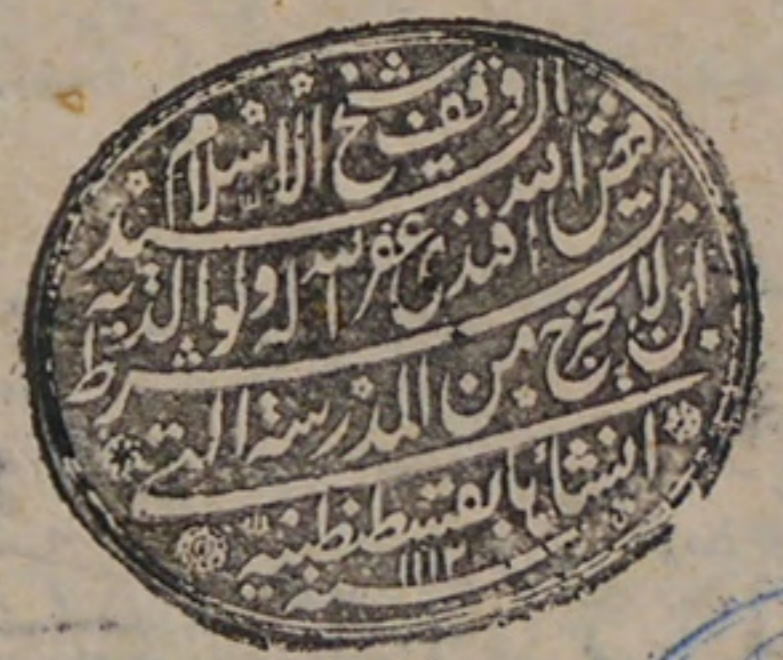 وقف شيخ الاسلام
السيد فيض الله
افندى غفر الله له ولوالديه
بشرط ان لا يخرج من المدرسة التى
انشأها بقسطنطينية
سنه ١١١٢